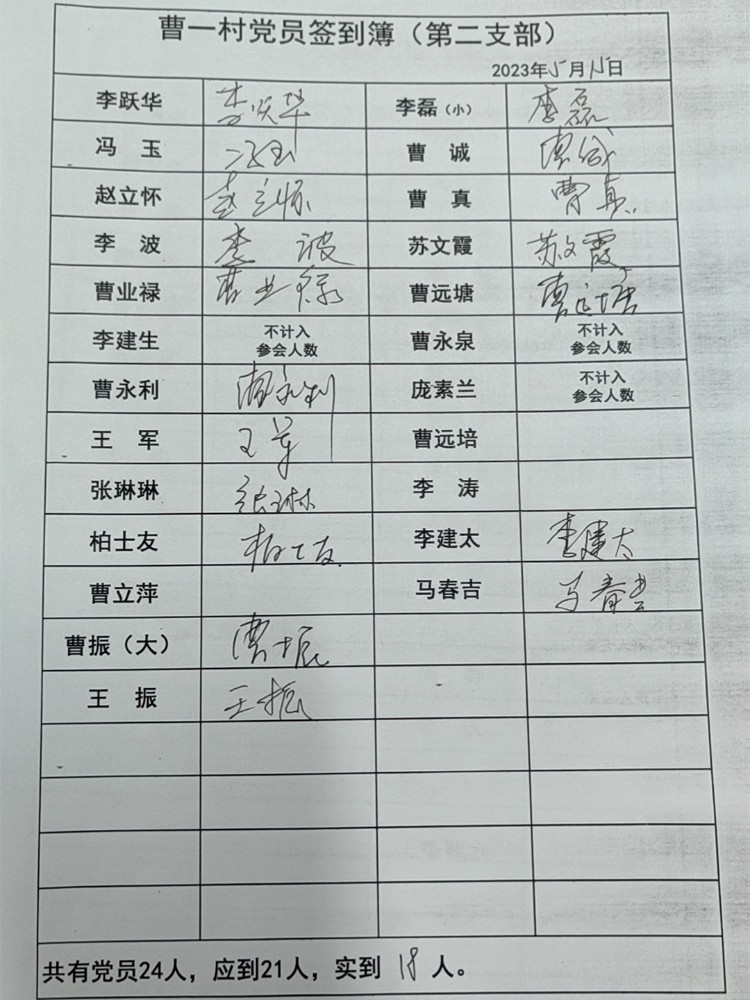 曹一村党员签到簿（第二支部）
2023年5月15日
李跃华 李跃华 李磊（小） 李磊
冯 玉 冯玉 曹 诚 曹诚
赵立怀 赵立怀 曹 真 曹真
李 波 李 波 苏文霞 苏文霞
曹业禄 曹业禄 曹远塘 曹远塘
李建生 不计入 曹永泉 不计入
参会人数 参会人数
曹永利 曹永利 庞素兰 不计入
参会人数
王 军 王军 曹远培
张琳琳 张琳琳 李 涛
柏士友 柏士友 李建太 李建太
曹立萍 马春吉 马春吉
曹振（大） 曹振
王 振 王振
共有党员24人，应到21人，实到 18 人。